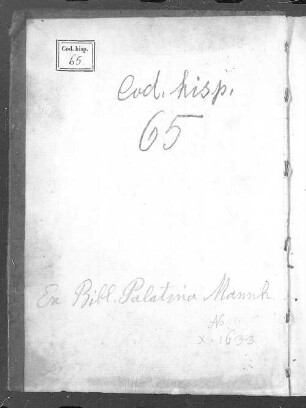 Cod. hisp.
65
Cod. hisp.
65
Ex Bibl. Palatina Mannh
No
x. 1633